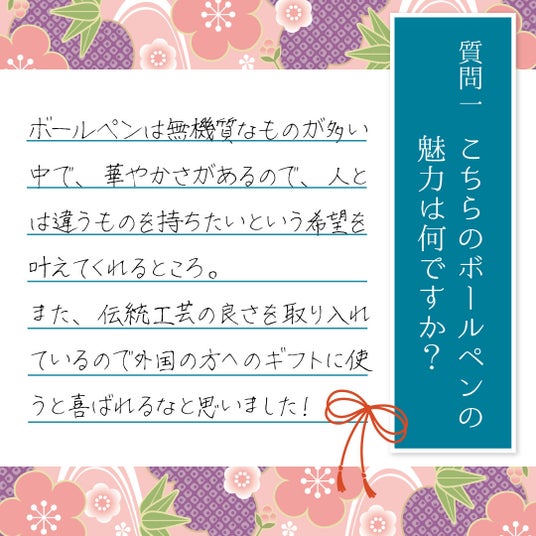 質問一 こちらのボールペンの
魅力は何ですか？
ボールペンは無機質なものが多い
中で、華やかさがあるので、人と
は違うものを持ちたいという希望を
叶えてくれるところ。
また、伝統工芸の良さを取り入れ
ているので外国の方へのギフトに使
うと喜ばれるなと思いました！